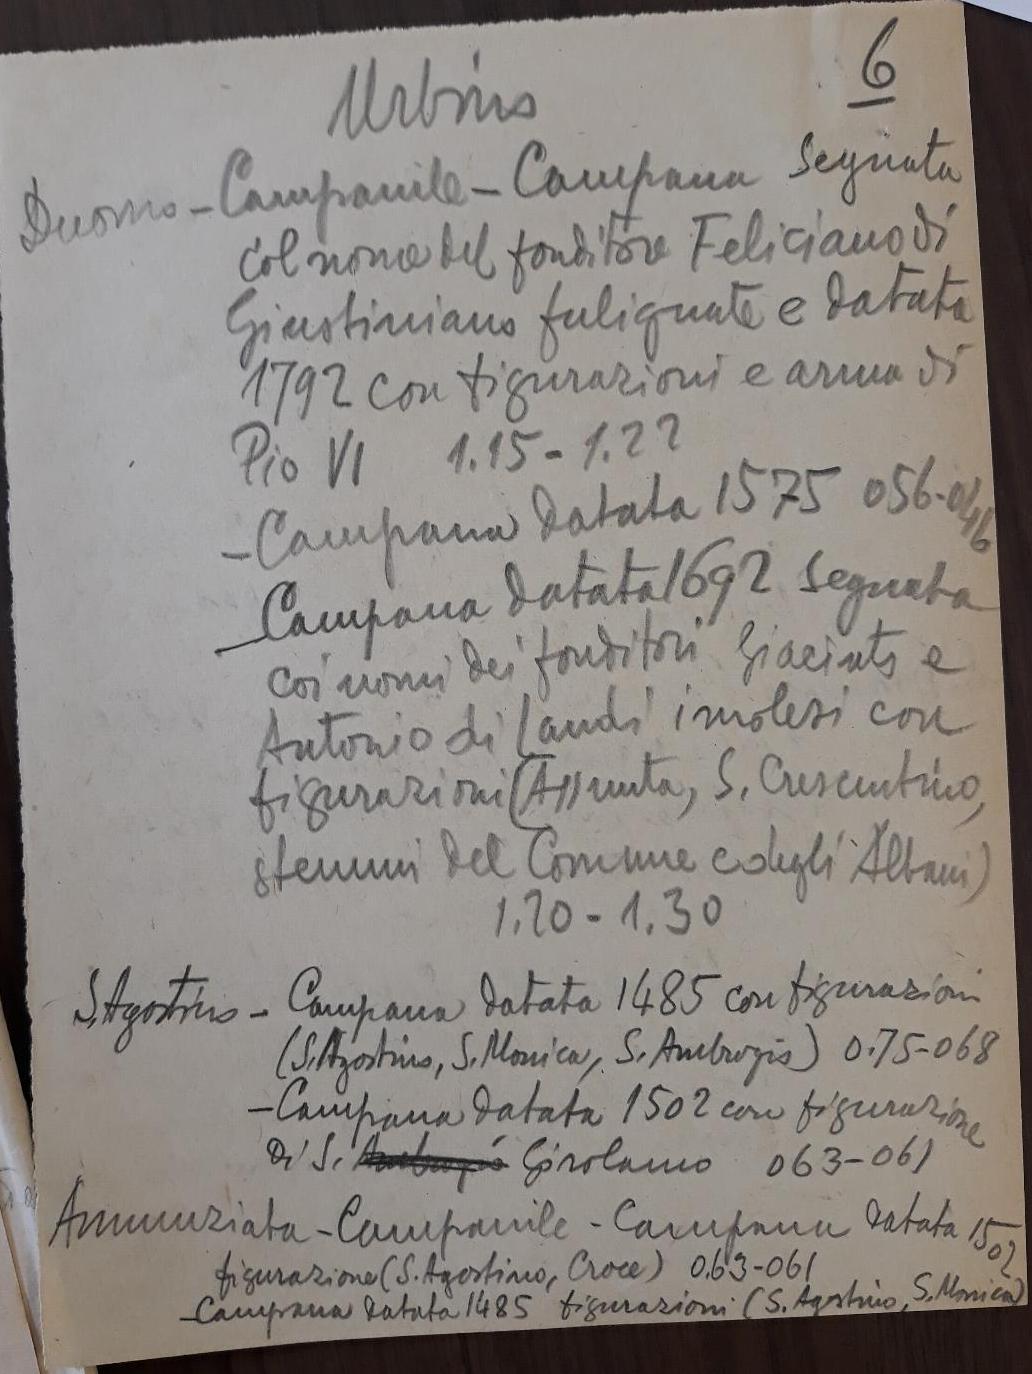 6
Urbino
Duomo - Campanile - Campana segnata
col nome del fonditore Feliciano di
Giustiniano fulignate e datata
1792 con figurazioni e arma di
Pio VI 1.15 - 1.22
- Campana datata 1575 056-046
- Campana datata 1692 segnata
coi nomi dei fonditori Giacinto e
Antonio di Landi imolesi con
figurazioni (Assunta, S. Crescentino,
stemmi del Comune e degli Albani)
1.20 - 1.30
S. Agostino - Campana datata 1485 con figurazioni
(S. Agostino, S. Monica, S. Ambrogio) 0.75-068
- Campana datata 1502 con figurazione
di S. Ambrogio Girolamo 063-061
Annunziata - Campanile - Campana datata 1502
figurazione (S. Agostino, Croce) 0.63-061
- Campana datata 1485 figurazioni (S. Agostino, S. Monica)